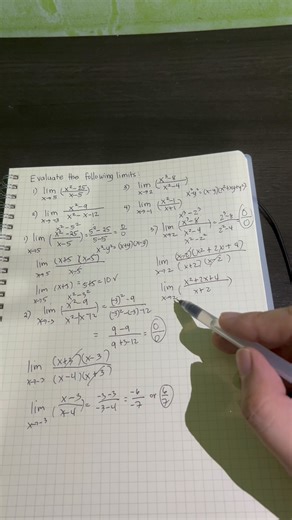 Evaluate the following limits:
1) lim x→5 (x²-25/x-5)
2) lim x→-3 x²-9/x²-x-12
3) lim x→2 (x³-8/x²-4)
4) lim x→-1 (x³-1/x+1)
1) lim x→5 (x²-25/x-5) = 5²-25/5-5 = 0/0
x²-5²
x²-y² = (x+y)(x-y)
lim x→5 (x+5)(x-5)/x-5
lim x→5 (x+5) = 5+5 = 10
x²-3²
2) lim x→-3 x²-9/x²-x-12 = (-3)²-9/(-3)²-(-3)-12
= 9-9/9+3-12 = 0/0
lim x→-3 (x+3)(x-3)/(x-4)(x+3)
lim x→-3 (x-3/x-4) = -3-3/-3-4 = -6/-7 or 6/7
x³-y³ = (x-y)(x²+xy+y²)
x³-2³
3) lim x→2 (x³-8/x²-4) = 2³-8/2²-4 = 0/0
x²-2²
lim x→2 (x-2)(x²+2x+4)/(x+2)(x-2)
lim x→2 (x²+2x+4/x+2)